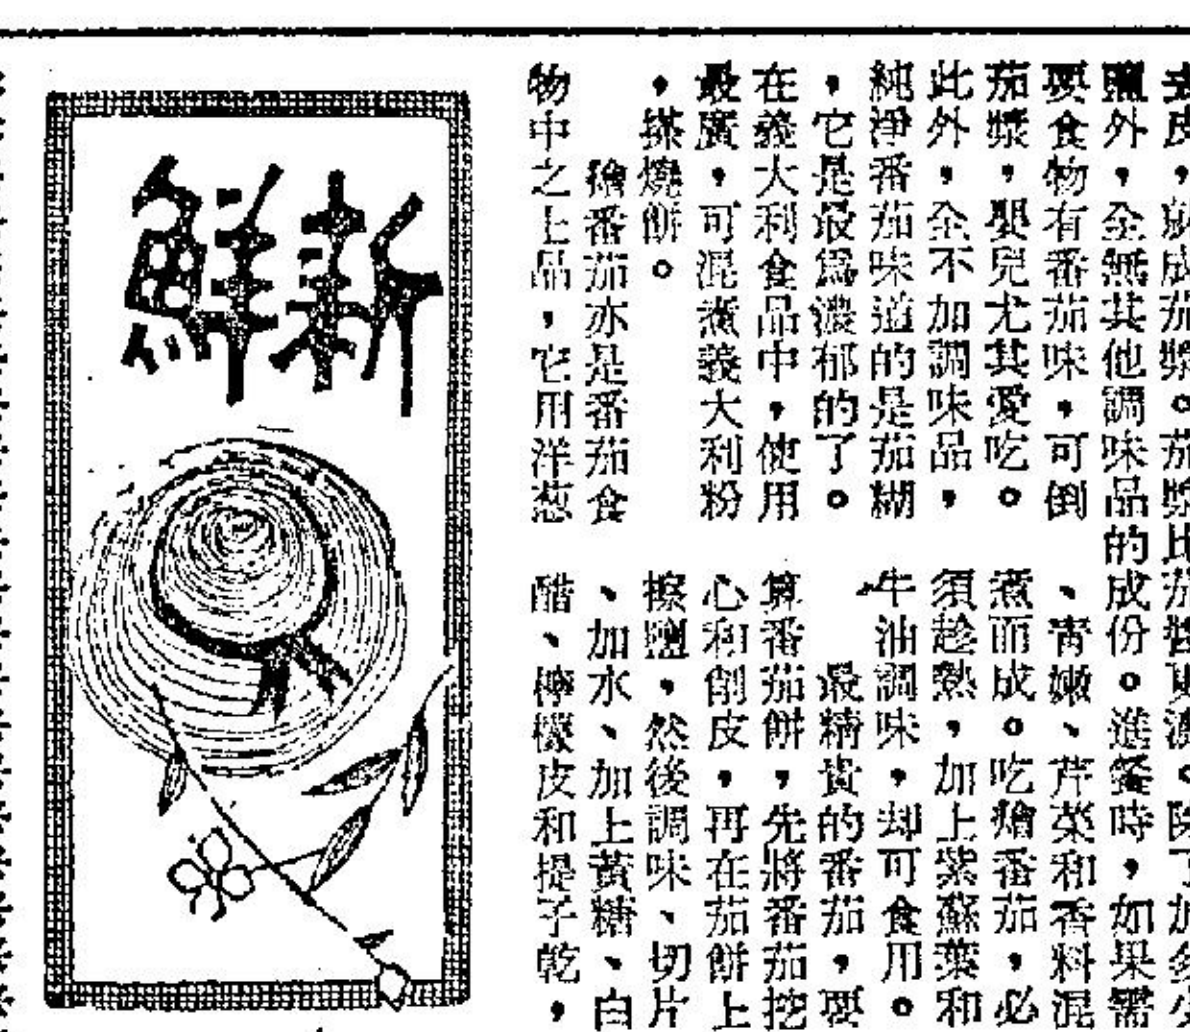 去皮，就成茄漿。茄漿比茄醬更濃。除了加多少
鹽外，全無其他調味品的成份。進餐時，如果需
要食物有番茄味，可倒
茄漿，嬰兒尤其愛吃。
此外，全不加調味品，
純淨番茄味道的是茄糊
，它是最爲濃郁的了。
在義大利食品中，使用
最廣，可混煮義大利粉
，搽燒餅。
燴番茄亦是番茄食
物中之上品，它用洋葱
、青嫩、芹菜和香料混
煮而成。吃燴番茄，必
須趁熱，加上紫蘇葉和
牛油調味，却可食用。
最精貴的番茄，要
算番茄餅，先將番茄挖
心和削皮，再在茄餅上
擦鹽，然後調味、切片
、加水、加上黃糖、白
醋、檸檬皮和提子乾，
新鮮